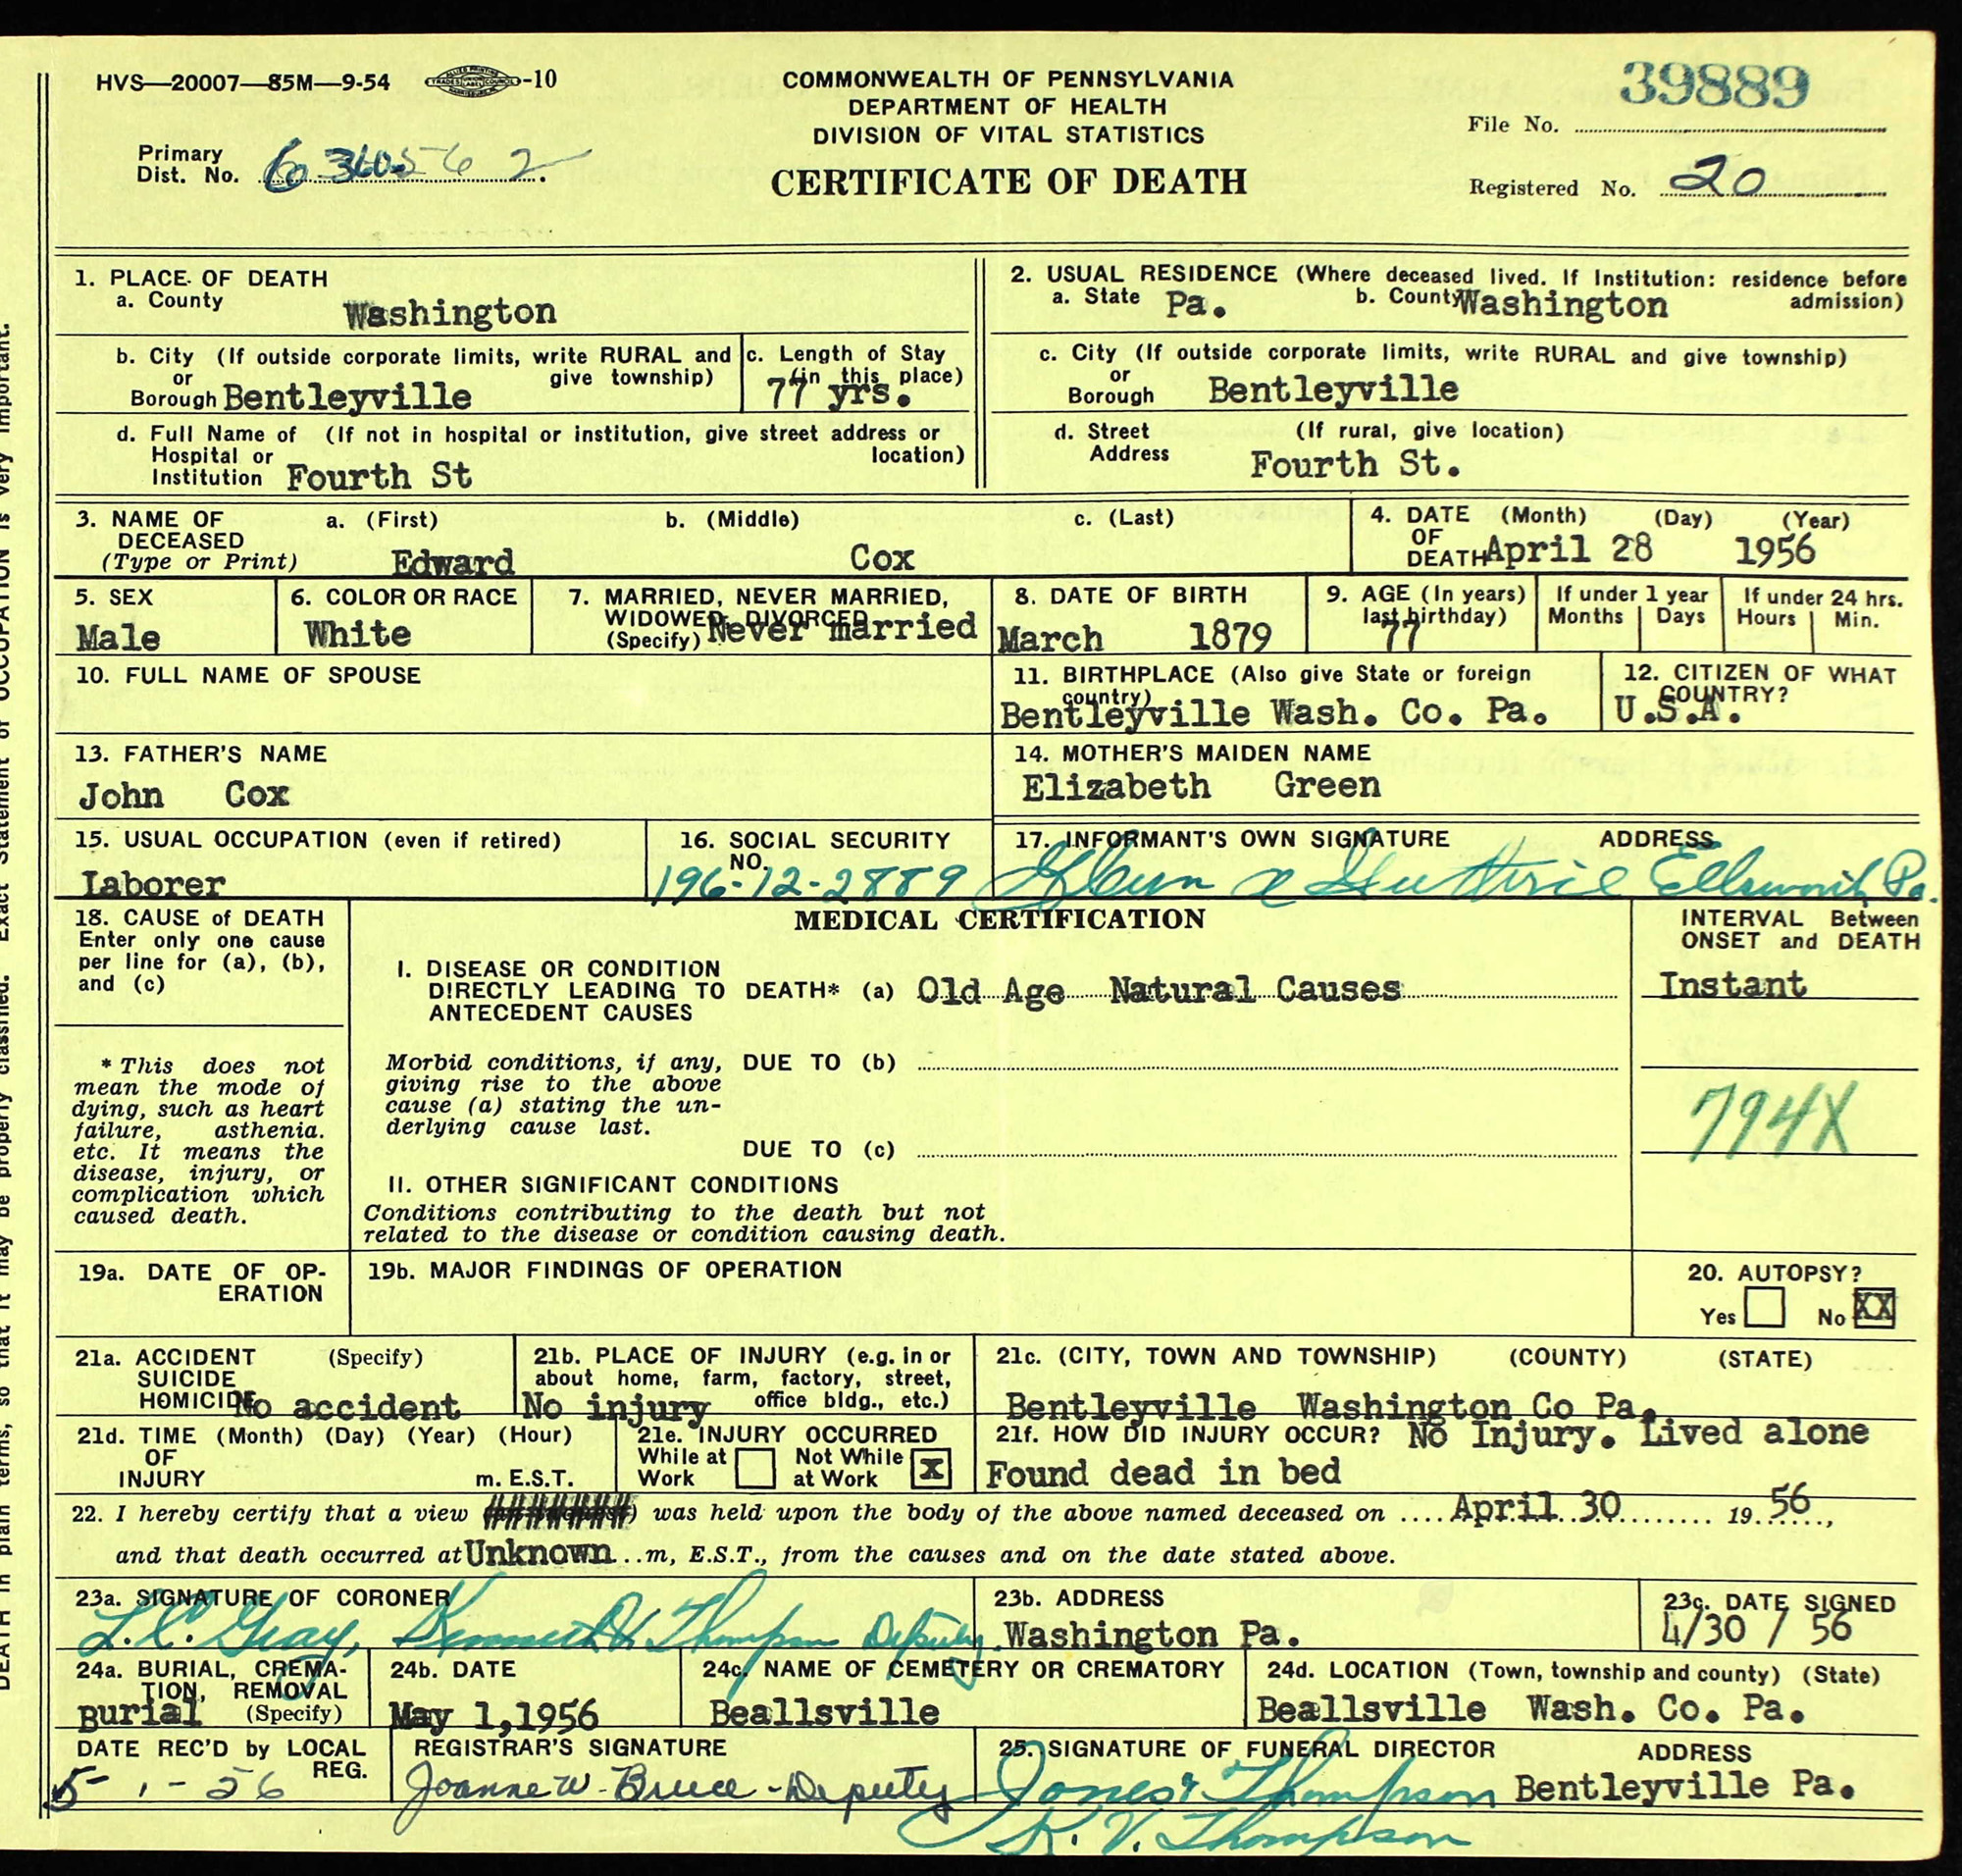 HVS—20007—85M—9-54 -10
COMMONWEALTH OF PENNSYLVANIA
DEPARTMENT OF HEALTH
DIVISION OF VITAL STATISTICS
CERTIFICATE OF DEATH
39889
File No.
Primary
Dist. No.
Registered No. 20
1. PLACE OF DEATH
a. County Washington
b. City (If outside corporate limits, write RURAL and
or give township)
Borough Bentleyville
c. Length of Stay
(in this place)
77 yrs.
d. Full Name of (If not in hospital or institution, give street address or
Hospital or location)
Institution Fourth St
2. USUAL RESIDENCE (Where deceased lived. If Institution: residence before
a. State Pa. b. County Washington admission)
c. City (If outside corporate limits, write RURAL and give township)
or
Borough Bentleyville
d. Street (If rural, give location)
Address Fourth St.
3. NAME OF a. (First) b. (Middle) c. (Last)
DECEASED
(Type or Print) Edward Cox
4. DATE (Month) (Day) (Year)
OF
DEATH April 28 1956
5. SEX
Male
6. COLOR OR RACE
White
7. MARRIED, NEVER MARRIED,
WIDOWED, DIVORCED
(Specify) Never married
8. DATE OF BIRTH
March 1879
9. AGE (In years)
last birthday)
77
If under 1 year
Months Days
If under 24 hrs.
Hours Min.
10. FULL NAME OF SPOUSE
11. BIRTHPLACE (Also give State or foreign
country)
Bentleyville Wash. Co. Pa.
12. CITIZEN OF WHAT
COUNTRY?
U.S.A.
13. FATHER'S NAME
John Cox
14. MOTHER'S MAIDEN NAME
Elizabeth Green
15. USUAL OCCUPATION (even if retired)
Laborer
16. SOCIAL SECURITY
NO.
196-12-2889
17. INFORMANT'S OWN SIGNATURE ADDRESS
Guthrie Ellsworth, Pa.
18. CAUSE of DEATH
Enter only one cause
per line for (a), (b),
and (c)
* This does not
mean the mode of
dying, such as heart
failure, asthenia.
etc. It means the
disease, injury, or
complication which
caused death.
MEDICAL CERTIFICATION
I. DISEASE OR CONDITION
DIRECTLY LEADING TO DEATH* (a) Old Age Natural Causes
ANTECEDENT CAUSES
Morbid conditions, if any, DUE TO (b)
giving rise to the above
cause (a) stating the un-
derlying cause last.
DUE TO (c)
II. OTHER SIGNIFICANT CONDITIONS
Conditions contributing to the death but not
related to the disease or condition causing death.
INTERVAL Between
ONSET and DEATH
Instant
794X
19a. DATE OF OP-
ERATION
19b. MAJOR FINDINGS OF OPERATION
20. AUTOPSY?
Yes No XX
21a. ACCIDENT (Specify)
SUICIDE
HOMICIDE No accident
21b. PLACE OF INJURY (e.g. in or
about home, farm, factory, street,
office bldg., etc.)
No injury
21c. (CITY, TOWN AND TOWNSHIP) (COUNTY) (STATE)
Bentleyville Washington Co Pa.
21d. TIME (Month) (Day) (Year) (Hour)
OF
INJURY m. E.S.T.
21e. INJURY OCCURRED
While at Not While
Work at Work X
21f. HOW DID INJURY OCCUR? No Injury. Lived alone
Found dead in bed
22. I hereby certify that a view was held upon the body of the above named deceased on April 30 1956,
and that death occurred at Unknown m, E.S.T., from the causes and on the date stated above.
23a. SIGNATURE OF CORONER
L.C. Gray, Kenneth V Thompson Deputy.
23b. ADDRESS
Washington Pa.
23c. DATE SIGNED
4/30 / 56
24a. BURIAL, CREMA-
TION, REMOVAL
Burial (Specify)
24b. DATE
May 1,1956
24c. NAME OF CEMETERY OR CREMATORY
Beallsville
24d. LOCATION (Town, township and county) (State)
Beallsville Wash. Co. Pa.
DATE REC'D by LOCAL
REG.
5-1-56
REGISTRAR'S SIGNATURE
Joanne W. Bruce - Deputy
25. SIGNATURE OF FUNERAL DIRECTOR ADDRESS
Jones & Thompson Bentleyville Pa.
K. V. Thompson
DEATH in plain terms, so that it may be properly classified. Exact Statement of OCCUPATION is very important.